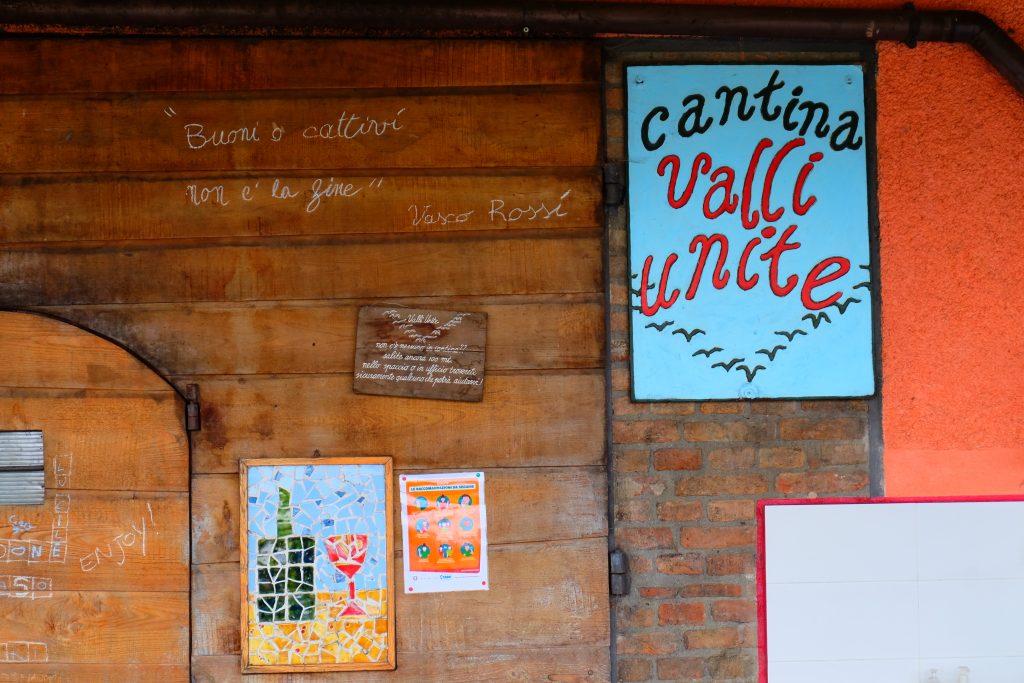 "Buoni o cattivi
non e' la fine"
Vasco Rossi
cantina
valli
unite
Valli Unite
non c'è nessuno in cantina??
salite ancora 100 mt.
nello spaccio o in ufficio troverete
sicuramente qualcuno che potrà aiutarvi!
LE RACCOMANDAZIONI DA SEGUIRE
ENJOY!
ONE